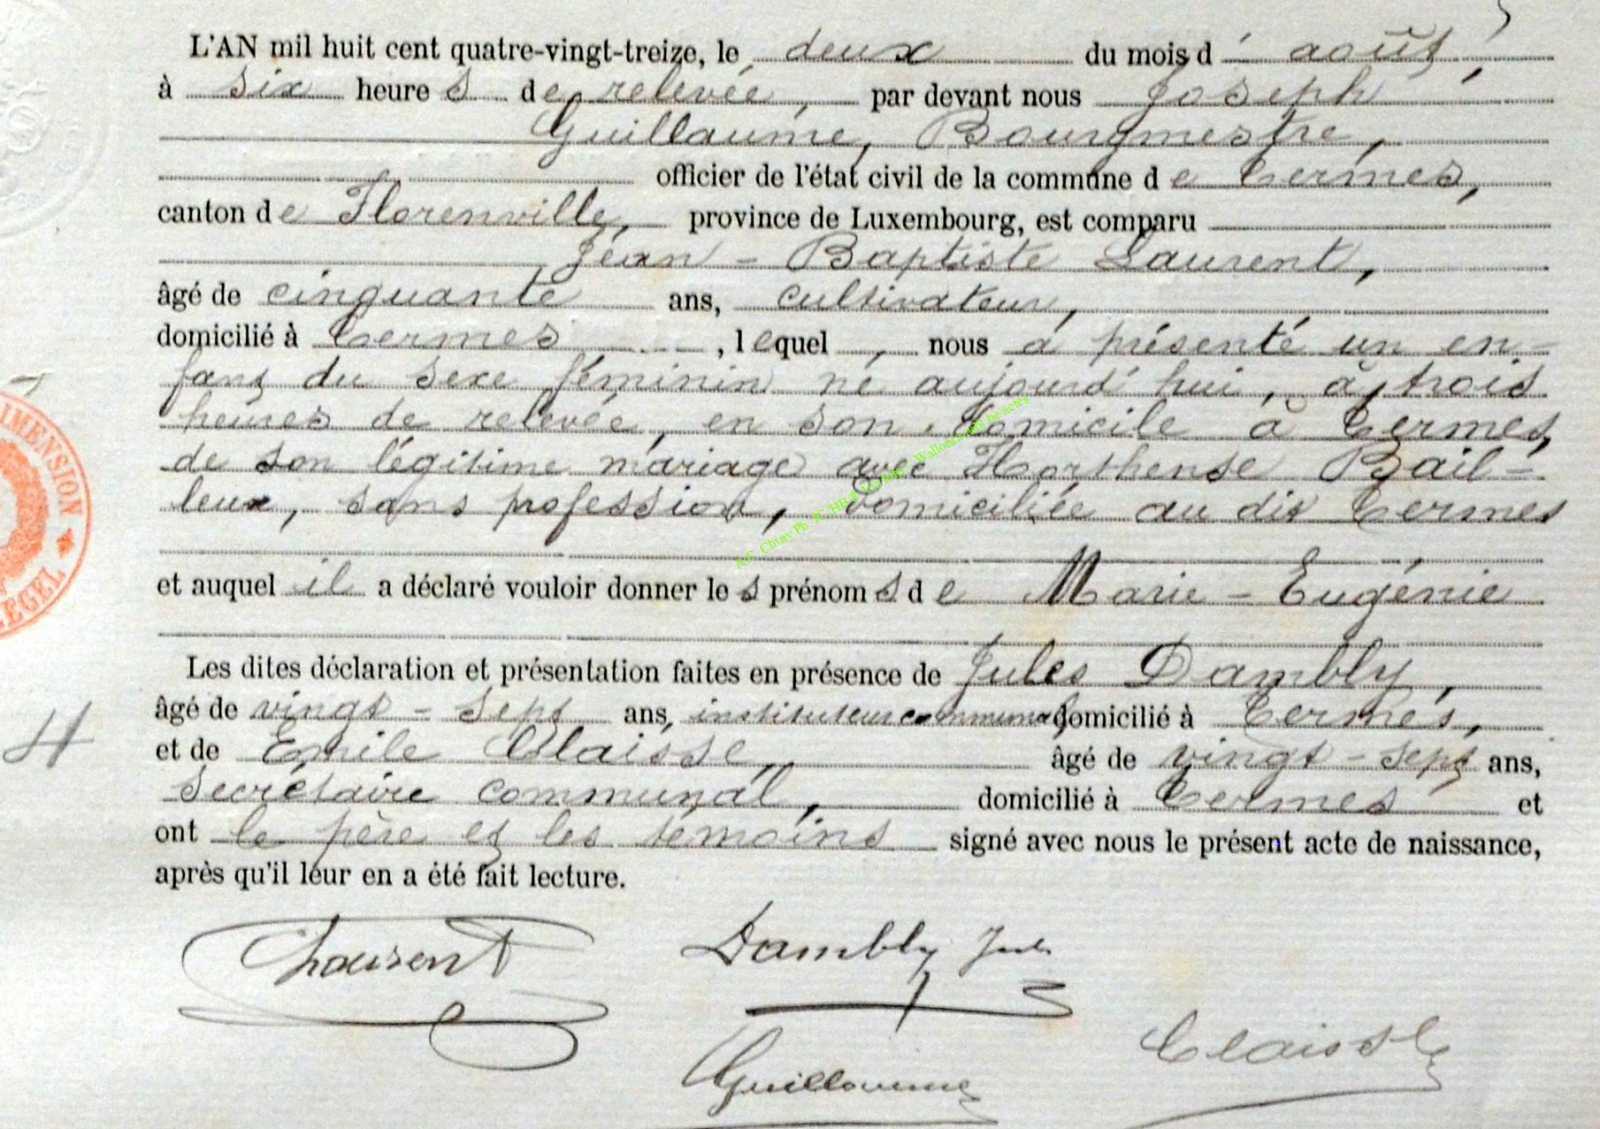 L'AN mil huit cent quatre-vingt-treize, le deux du mois d' août,
à six heures de relevée, par devant nous Joseph
Guillaume, Bourgmestre,
officier de l'état civil de la commune de Termes,
canton de Florenville, province de Luxembourg, est comparu
Jean-Baptiste Laurent,
âgé de cinquante ans, cultivateur,
domicilié à Termes, lequel, nous a présenté un en-
fant du sexe féminin né aujourd'hui, à trois
heures de relevée, en son domicile à Termes,
de son légitime mariage avec Horthense Bail-
leux, sans profession, domiciliée au dit Termes
et auquel il a déclaré vouloir donner les prénoms de Marie-Eugénie
Les dites déclaration et présentation faites en présence de Jules Dambly,
âgé de vingt-sept ans, instituteur communal, domicilié à Termes,
et de Emile Claisse, âgé de vingt-sept ans,
secrétaire communal, domicilié à Termes et
ont le père et les témoins signé avec nous le présent acte de naissance,
après qu'il leur en a été fait lecture.
Laurent Dambly Jul.
Guillaume Claisse
IMENSION